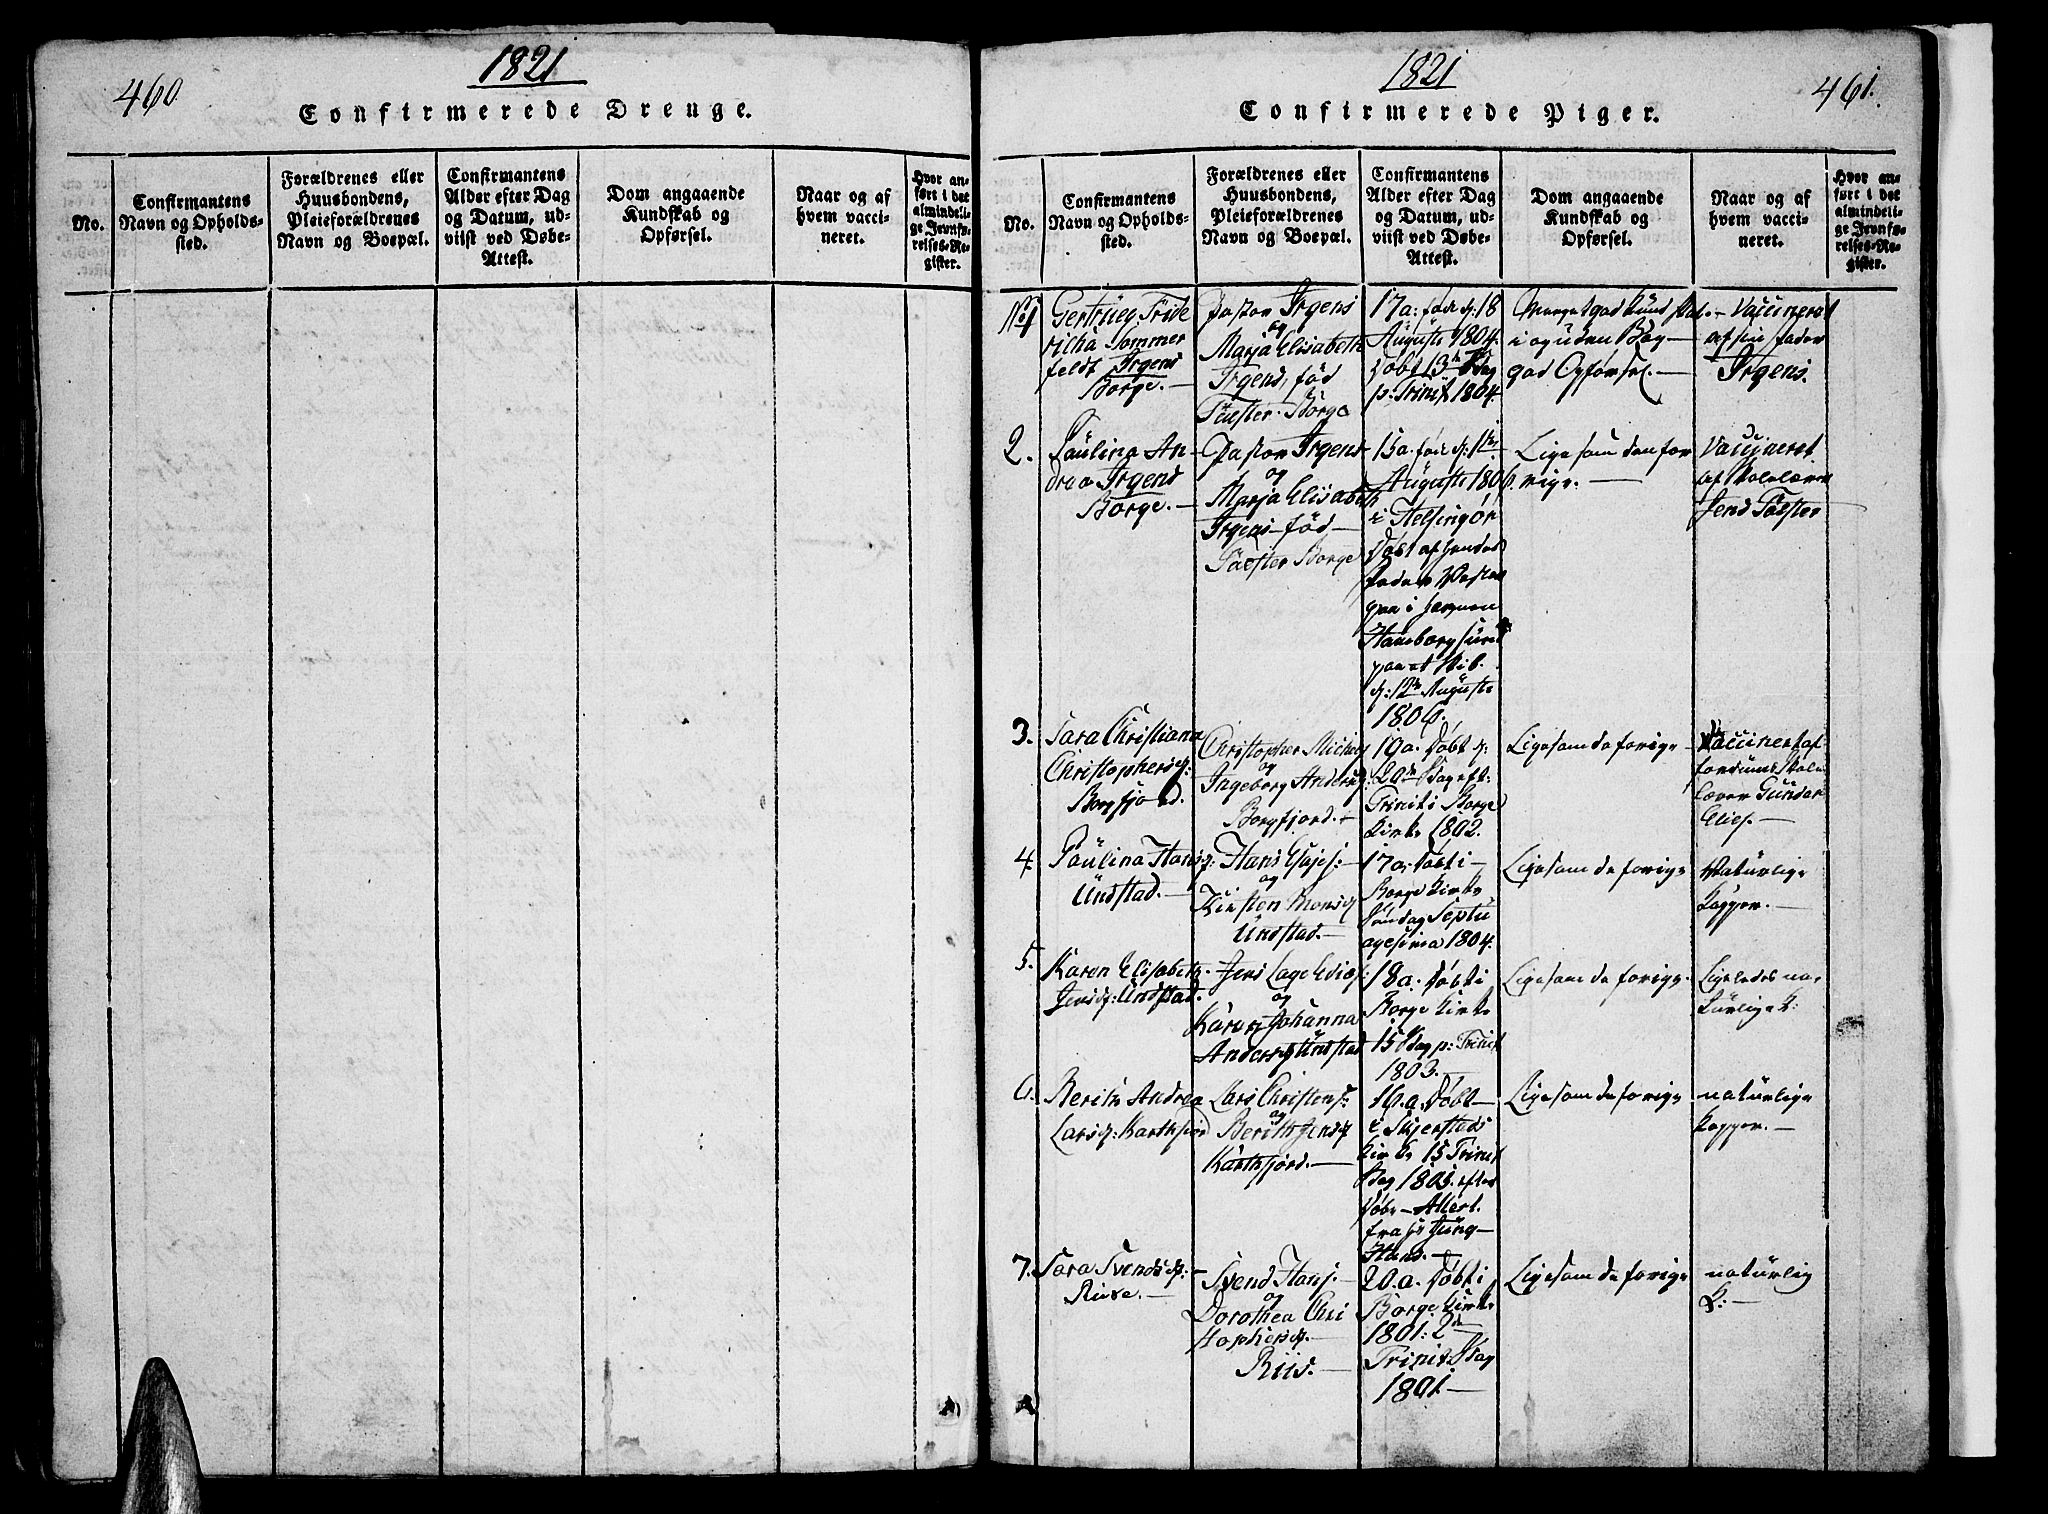 460.
1821
Confirmerede Drenge.
No.
Confirmantens
Navn og Opholds-
sted.
Forældrenes eller
Huusbondens,
Pleieforældrenes
Navn og Boepæl.
Confirmantens
Alder efter Dag
og Datum, ud-
viist ved Døbe-
Attest.
Dom angaaende
Kundskab og
Opførsel.
Naar og af
hvem vacci-
neret.
Hvor an-
ført i det
almindeli-
ge Jevnfø-
relses-Re-
gister.
1821
461.
Confirmerede Piger.
No.
Confirmantens
Navn og Opholds-
sted.
Forældrenes eller
Huusbondens,
Pleieforældrenes
Navn og Boepæl.
Confirmantens
Alder efter Dag
og Datum, ud-
viist ved Døbe-
Attest.
Dom angaaende
Kundskab og
Opførsel.
Naar og af
hvem vacci-
neret.
Hvor an-
ført i det
almindeli-
ge Jevnfø-
relses-Re-
gister.
No 1
Gertrüee Fride
richa Sommer
feldt Irgens
Borge. —
Pastor Irgens
og
Maria Elisabeth
Irgens, fød
Borge
17 a: föde d: 18
Auguste 1804.
Döbt 13de Sdag
p: Trinit 1804.
Meget god Kundskab
i og uden Bog —
god Opförsel. —
Vaccineret
af sin fader
Irgens.
2.
Paulina An
drea Irgens
Borge. —
Pastor Irgens
og
Maria Elisabeth
Irgens — fød —
Borge
15 a. föde d: 11te
Auguste 1806.
i Helsingör
Döbt af hendes
fader
paa i
paa
d: 12te Auguste
1806.
Ligesom den for
rige. —
Vaccineret
af Skolelærer
Jens
3.
Sara Christiana
Christophersd:
Borgfjord.
Christopher Michels:
og
Ingeborg Andersd:
Borgfjord. —
19 a. Döbt d:
20de Sdag eft:
Trinit i Borge
Kirke 1802.
Ligesom de forige —
Vaccineret af
fordums Skole
lærer Gunder
Elies. —
4.
Paulina Hansd:
Undstad. —
Hans
og
Kirsten Monsd
Undstad. —
17 a. Döbt i —
Borge Kirke
Söndag Septu
agesima 1804.
Ligesom de forige
Naturlige
Kopper. —
5.
Karen Elisabeth
Jensd: Undstad.
Jens Lage
og
Karen Johanna
Andersd Undstad
18 a. Döbt i
Borge Kirke
15 Sdag p: Trinit
1803. —
Ligesom de forige.
Ligeledes na-
turlige K:
6.
Berith Andrea
Larsd: Kartfjord
Lars Christens:
og
Berith Jensd
Kartfjord. —
16. a. Döbt —
i Skjersteds
Kirke 15 Trinit
Sdag 1805. efter
Döbe — Attest.
fra Hr Jung —
Hans. —
Ligesom de forige
naturlige
Kopper. —
7.
Sara Svendsd: —
Svend Hans. —
og
Dorothea Chri
stophersd. —
Riis. —
20. a. Döbt i
Borge Kirke
1801: 2de
Trinit Sdag
1801. —
Ligesom de forige
naturlig
K: —